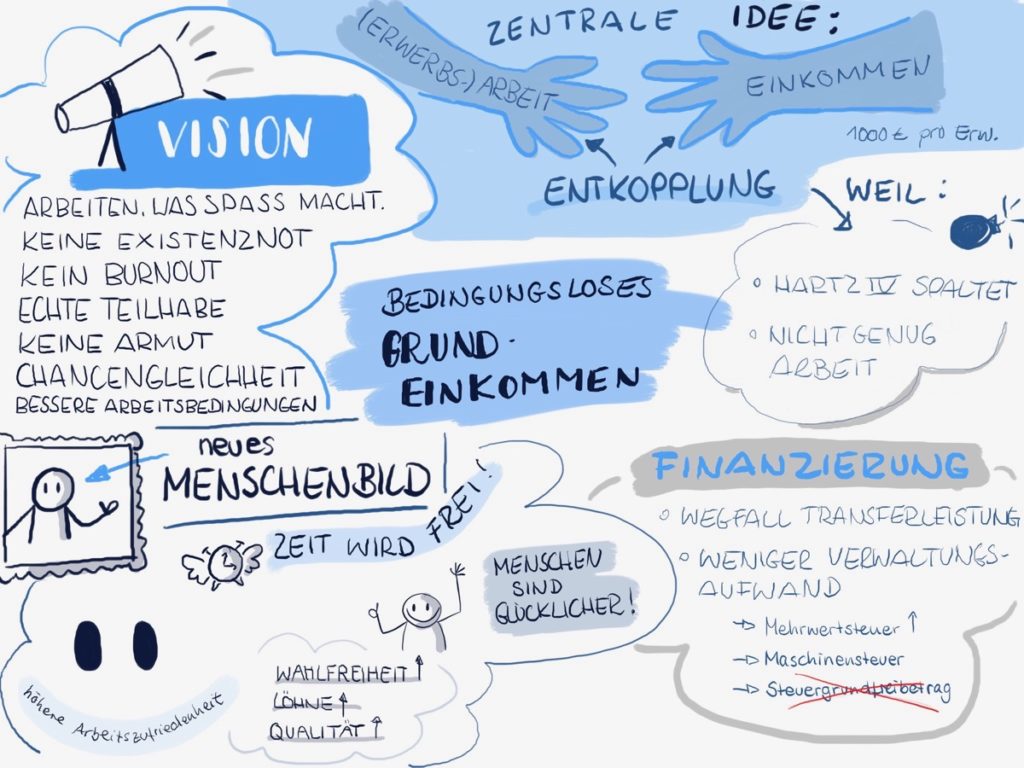 ZENTRALE IDEE:
(ERWERBS-) ARBEIT
EINKOMMEN
1000 € pro Erw.
ENTKOPPLUNG
WEIL:
HARTZ IV SPALTET
NICHT GENUG
ARBEIT
VISION
ARBEITEN, WAS SPASS MACHT.
KEINE EXISTENZNOT
KEIN BURNOUT
ECHTE TEILHABE
KEINE ARMUT
CHANCENGLEICHHEIT
BESSERE ARBEITSBEDINGUNGEN
BEDINGUNGSLOSES
GRUND-
EINKOMMEN
neues
MENSCHENBILD
ZEIT WIRD FREI!
MENSCHEN
SIND
GLÜCKLICHER!
WAHLFREIHEIT ↑
LÖHNE ↑
QUALITÄT ↑
höhere Arbeitszufriedenheit
FINANZIERUNG
WEGFALL TRANSFERLEISTUNG
WENIGER VERWALTUNGS-
AUFWAND
→ Mehrwertsteuer ↑
→ Maschinensteuer
→ Steuergrundfreibetrag